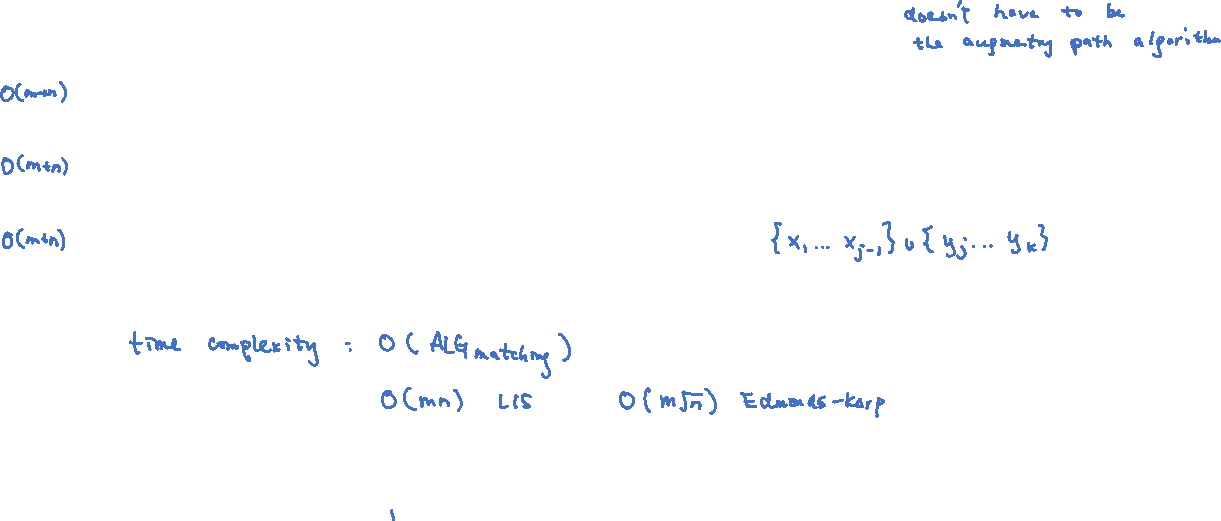 doesn't have to be
the augmentng path algorithm
O(m+n)
O(m+n)
O(m+n)
{x₁ ... xⱼ₋₁} ∪ {yⱼ ... yₖ}
time complexity : O(ALG matching)
O(mn) LIS O(m√n) Edmonds-Karp